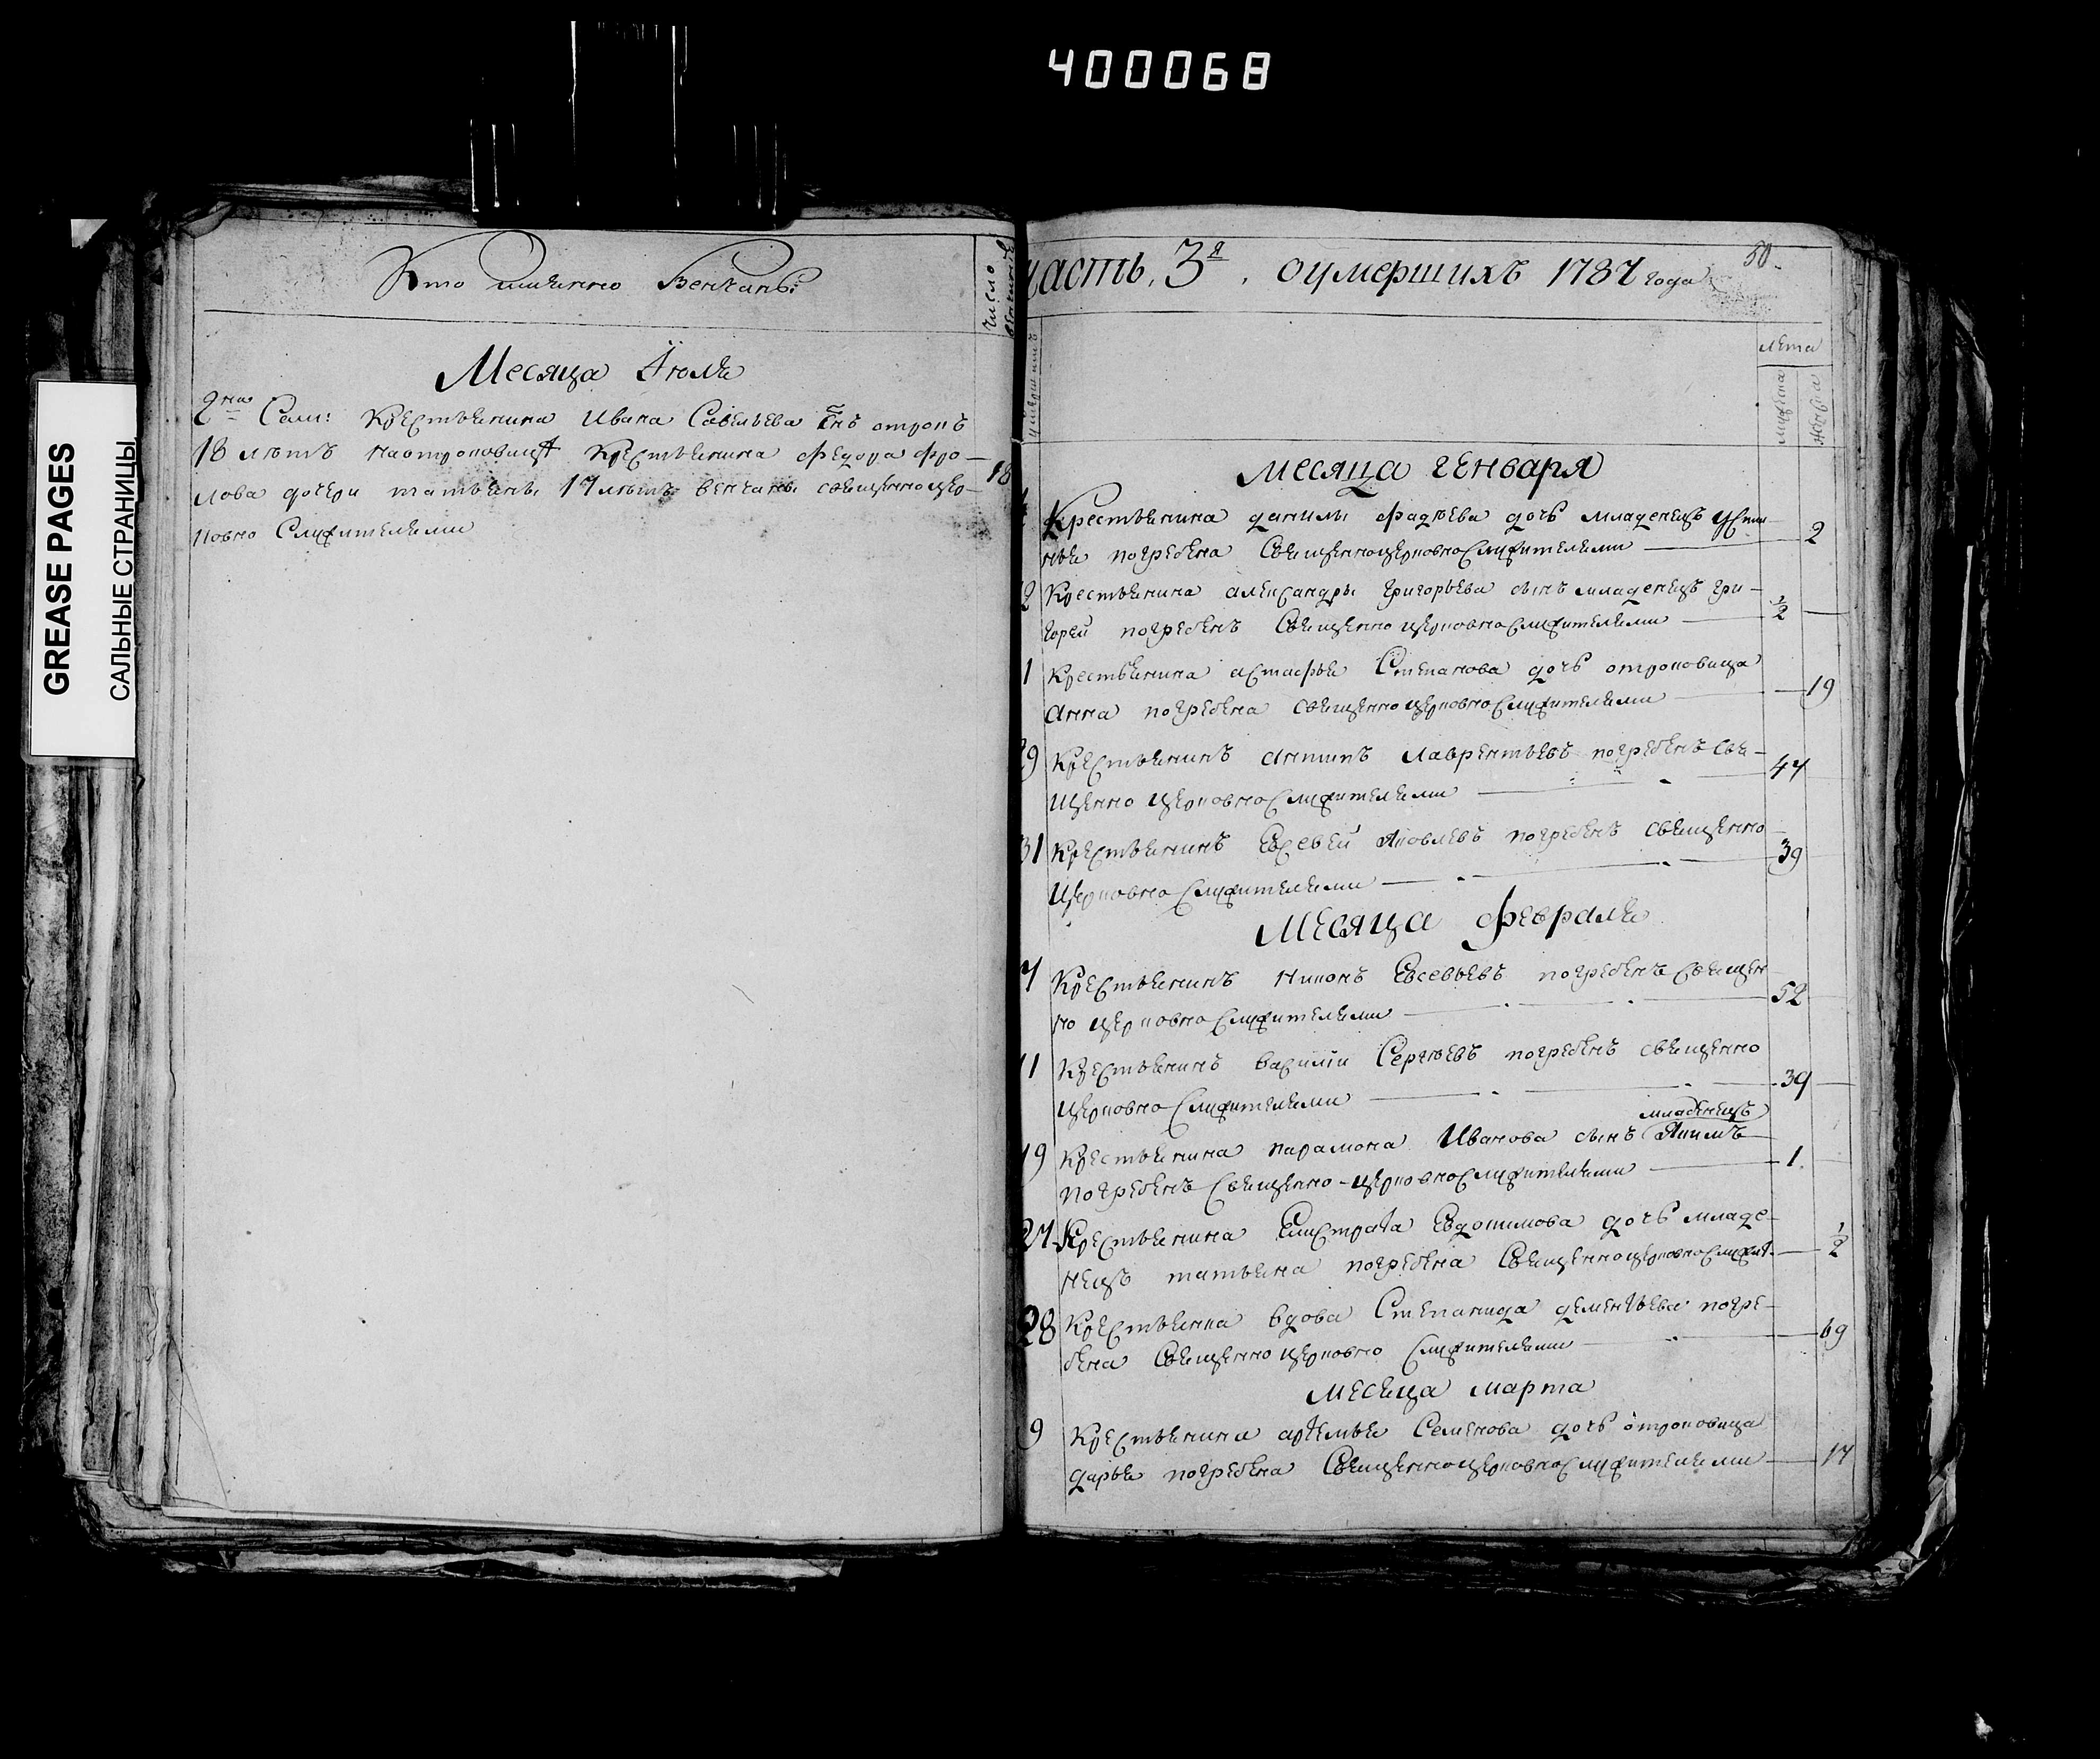 400068
GREASE PAGES
САЛЬНЫЕ СТРАНИЦЫ
Кто имянно Венчаны
число
венчаней
Месяца Июля
2 на Сели: Крестьянина Ивана Савельева снъ отрокъ
18 лѣтъ наотроковицѣ Крестьянина Федора Фро-
лова дочери татьяны 17 лѣтъ венчаны священноцер-
ковно Служителями
18
часть. 3я. оумершихъ 1787 года
50
лета
мужеска
женска
Месяца генваря
Крестьянина данилы фадѣева дочь младенецъ Усти-
нья погребена Священноцерковнослужителями
2
2 Крестьянина александры григорьева сынъ младенецъ гри-
горей погребенъ Священно церковнослужителями
1/2
1 Крестьянина астафья Степанова дочь отроковица
анна погребена священно церковнослужителями
19
29 Крестьянинъ антипъ лаврентьевъ погребенъ Свя-
щенно церковнослужителями
47
31 Крестьянинъ Евсевей яковлевъ погребенъ священно
церковнослужителями
39
Месяца февраля
7 Крестьянинъ никонъ Евсевьевъ погребенъ священ
но церковнослужителями
52
11 Крестьянинъ василии Сергѣевъ погребенъ священно
церковнослужителями
39
младенецъ
19 Крестьянина парамона Иванова сынъ якимъ
погребенъ священно-церковнослужителями
1
27 Крестьянина Елистрата Евдокимова дочь младе-
нецъ татьяна погребена Священноцерковнослужит.
1/2
28 Крестьянка вдова Степанида дементьева погре-
бена Священно церковно служителями
69
месяца марта
9 Крестьянина артемья Семенова дочь отроковица
дарья погребена Священноцерковнослужителями
17